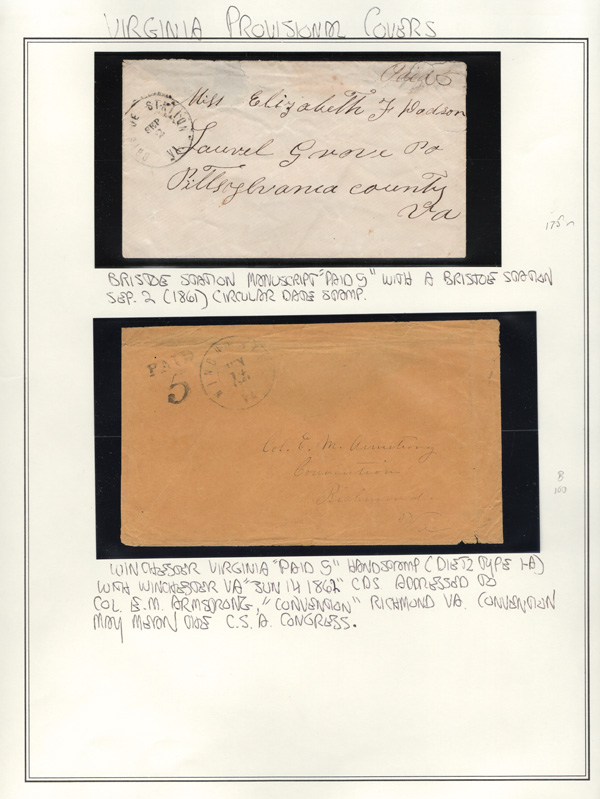 VIRGINIA PROVISIONAL COVERS
Paid 5
STATION
SEP
Miss Elizabeth F Dodson
Laurel Grove Po
Pittsylvania county
Va
175
BRISTOE STATION MANUSCRIPT "PAID 5" WITH A BRISTOE STATION
SEP. 2 (1861) CIRCULAR DATE STAMP.
PAID
5
VA
Col. E. M. Armstrong
Convention
Richmond.
Va
8
100
WINCHESTER VIRGINIA "PAID 5" HANDSTAMP (DIETZ TYPE I-A)
WITH WINCHESTER VA "JUN 14 1862" CDS ADDRESSED TO
COL E.M. ARMSTRONG, "CONVENTION" RICHMOND VA. CONVENTION
MAY MEAN THE C.S.A. CONGRESS.